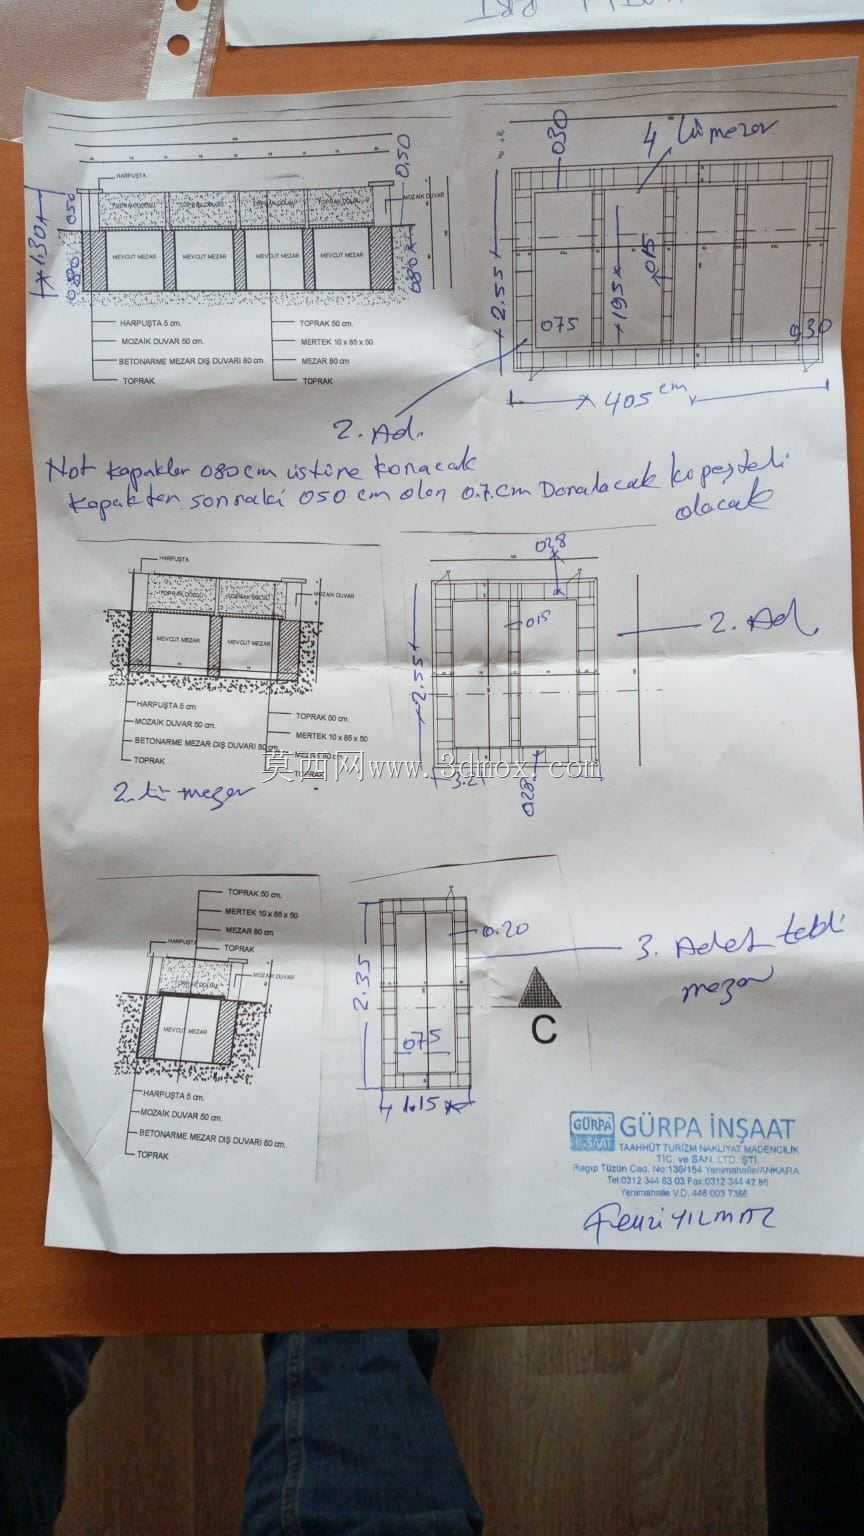 HARPUŞTA
0,50
030
4 lü mezar
050
MOZAİK DUVAR
TOPRAK DOLGU
TOPRAK DOLGU
TOPRAK DOLGU
TOPRAK DOLGU
1.30
MEVCUT MEZAR
MEVCUT MEZAR
MEVCUT MEZAR
MEVCUT MEZAR
080
080
2.55
195
015
075
0,30
HARPUŞTA 5 cm.
MOZAİK DUVAR 50 cm.
BETONARME MEZAR DIŞ DUVARI 80 cm.
TOPRAK
TOPRAK 50 cm.
MERTEK 10 x 85 x 50
MEZAR 80 cm
TOPRAK
405 cm
2. Ad.
Not kapaklar 080 cm üstüne konacak
Kapaktan sonraki 050 cm olan 0.7.cm Daralacak kopesteli
olacak
HARPUŞTA
MOZAİK DUVAR
TOPRAK DOLGU
TOPRAK DOLGU
MEVCUT MEZAR
MEVCUT MEZAR
028
015
2.55
2. Ad.
HARPUŞTA 5 cm.
MOZAİK DUVAR 50 cm.
BETONARME MEZAR DIŞ DUVARI 80 cm.
TOPRAK
TOPRAK 50 cm.
MERTEK 10 x 85 x 50
MEZAR 80 cm
TOPRAK
3.21
028
莫西网www.3dmox.com
2. li mezar
TOPRAK 50 cm.
MERTEK 10 x 85 x 50
MEZAR 80 cm
TOPRAK
HARPUŞTA
MOZAİK DUVAR
TOPRAK DOLGU
MEVCUT MEZAR
0.20
2.35
075
1.15
3. Adet tekli
mezar
C
HARPUŞTA 5 cm.
MOZAİK DUVAR 50 cm.
BETONARME MEZAR DIŞ DUVARI 80 cm.
TOPRAK
GÜRPA İNŞAAT
GÜRPA İNŞAAT
TAAHHÜT TURİZM NAKLİYAT MADENCİLİK
TİC. ve SAN. LTD. ŞTİ.
Ragıp Tüzün Cad. No:136/154 Yenimahalle/ANKARA
Tel:0312 344 63 03 Fax:0312 344 42 86
Yenimahalle V.D. 446 003 7366
YILMAZ